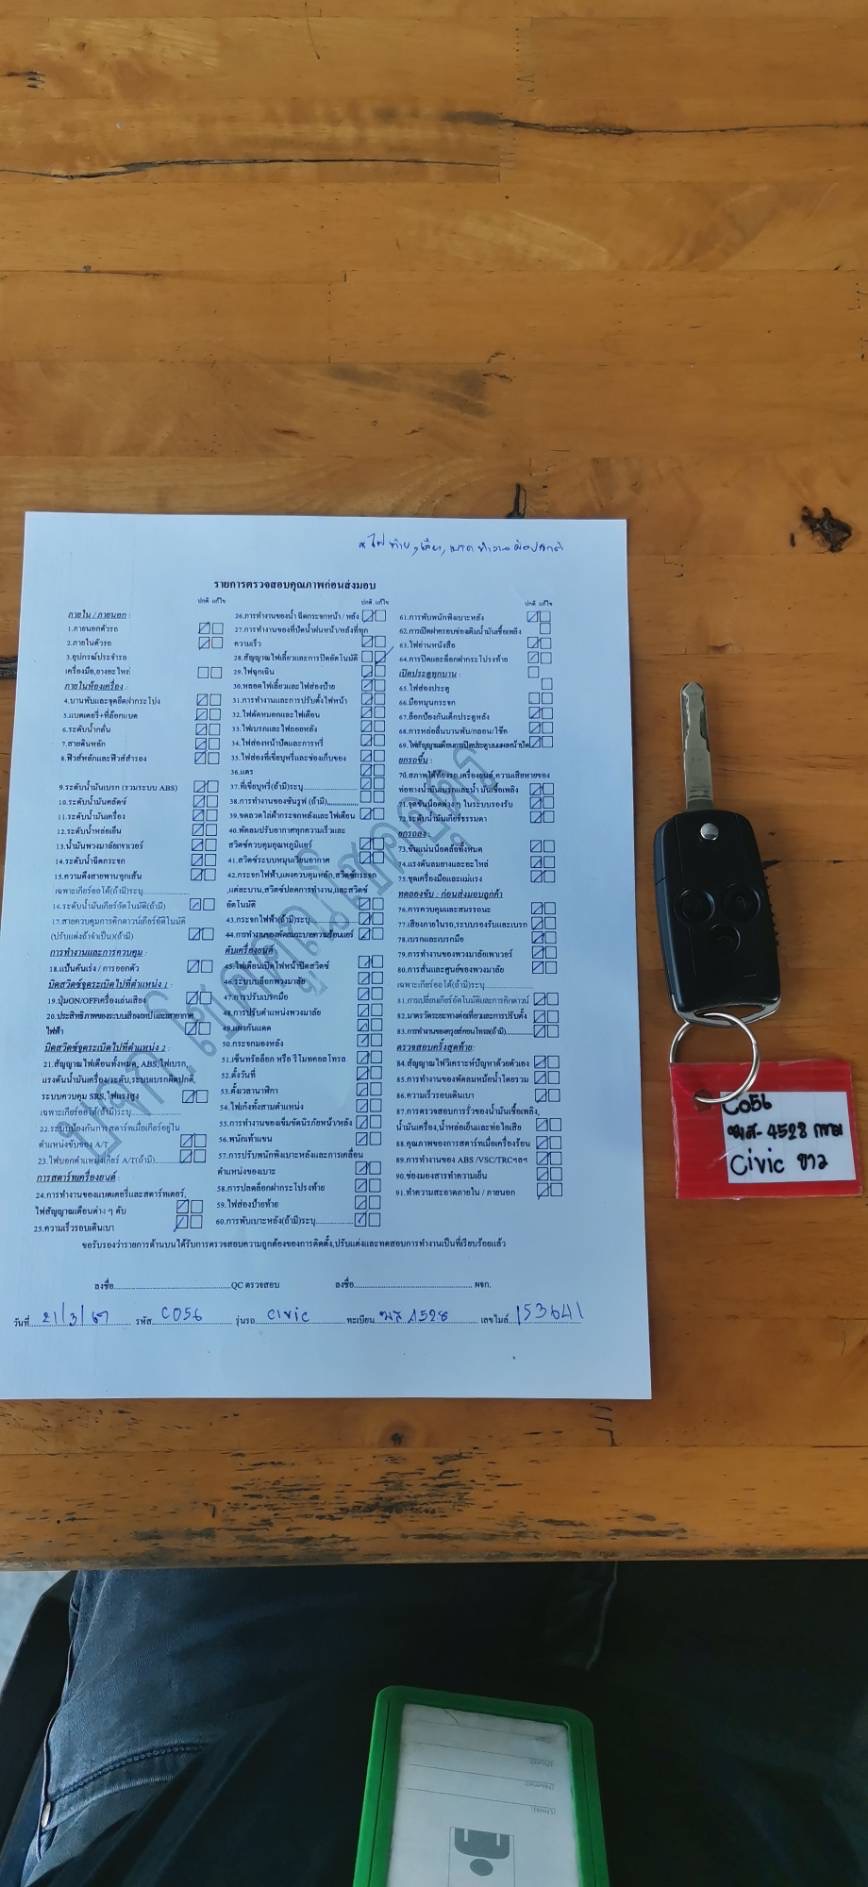 รายการตรวจสอบคุณภาพก่อนส่งมอบ
ปกติ แก้ไข
ภายใน / ภายนอก :
1.ภายนอกตัวรถ
2.ภายในตัวรถ
3.อุปกรณ์ประจำรถ
เครื่องมือ,ยางอะไหล่
ภายในห้องเครื่อง :
4.บานพับและจุดยึดฝากระโปรง
5.แบตเตอรี่+ที่ล็อกแบต
6.ระดับน้ำกลั่น
7.สายดินหลัก
8.ฟิวส์หลักและฟิวส์สำรอง
9.ระดับน้ำมันเบรก (รวมระบบ ABS)
10.ระดับน้ำมันคลัตช์
11.ระดับน้ำมันเครื่อง
12.ระดับน้ำหล่อเย็น
13.น้ำมันพวงมาลัยเพาเวอร์
14.ระดับน้ำฉีดกระจก
15.ความตึงสายพานทุกเส้น
เฉพาะเกียร์ออโต้(ถ้ามี)ระบุ
16.ระดับน้ำมันเกียร์อัตโนมัติ(ถ้ามี)
17.สายควบคุมการคิกดาวน์เกียร์อัตโนมัติ
(ปรับแต่งถ้าจำเป็น)(ถ้ามี)
การทำงานและการควบคุม :
18.แป้นคันเร่ง / การออกตัว
บิดสวิตช์จุดระเบิดไปที่ตำแหน่ง 1 :
19.ปุ่มON/OFFเครื่องเล่นเสียง
20.ประสิทธิภาพของระบบเสียงเทปและสายอากาศ
ไฟฟ้า
บิดสวิตช์จุดระเบิดไปที่ตำแหน่ง 2 :
21.สัญญาณไฟเตือนทั้งหมด, ABS,ไฟเบรก,
แรงดันน้ำมันเครื่อง/ระดับ,ระบบเบรกผิดปกติ,
ระบบควบคุม SRS,ไฟแรงสูง
เฉพาะเกียร์ออโต้(ถ้ามี)ระบุ
22.ระบบป้องกันการสตาร์ทเมื่อเกียร์อยู่ใน
ตำแหน่งขับของ A/T
23.ไฟบอกตำแหน่งเกียร์ A/T(ถ้ามี)
การสตาร์ทเครื่องยนต์
24.การทำงานของแบตเตอรี่และสตาร์ทเตอร์,
ไฟสัญญาณเตือนต่าง ๆ ดับ
25.ความเร็วรอบเดินเบา
ปกติ แก้ไข
26.การทำงานของน้ำ ฉีดกระจกหน้า / หลัง
27.การทำงานของที่ปัดน้ำฝนหน้า/หลังที่ทุก
ความเร็ว
28.สัญญาณไฟเลี้ยวและการปิดอัตโนมัติ
29.ไฟฉุกเฉิน
30.หลอดไฟเลี้ยวและไฟส่องป้าย
31.การทำงานและการปรับตั้งไฟหน้า
32.ไฟตัดหมอกและไฟเตือน
33.ไฟเบรกและไฟถอยหลัง
34.ไฟส่องหน้าปัดและการหรี่
35.ไฟส่องที่เขี่ยบุหรี่และช่องเก็บของ
36.แตร
37.ที่เขี่ยบุหรี่(ถ้ามี)ระบุ
38.การทำงานของซันรูฟ (ถ้ามี)
39.ขดลวดไล่ฝ้ากระจกหลังและไฟเตือน
40.พัดลมปรับอากาศทุกความเร็วและ
สวิตช์ควบคุมอุณหภูมิแอร์
41.สวิตช์ระบบหมุนเวียนอากาศ
42.กระจกไฟฟ้า,แผงควบคุมหลัก,สวิตช์กระจก
,แต่ละบาน,สวิตช์ปลดการทำงาน,และสวิตช์
อัตโนมัติ
43.กระจกไฟฟ้า(ถ้ามี)ระบุ
44.การทำงานของพัดลมระบายความร้อนแอร์
ดับเครื่องยนต์ :
45.ไฟเตือนเปิดไฟหน้าปิดสวิตช์
46.ระบบล็อกพวงมาลัย
47.การปรับเบรกมือ
48.การปรับตำแหน่งพวงมาลัย
49.แผงกันแดด
50.กระจกมองหลัง
51.เซ็นทรัลล็อก หรือ รีโมทคอลโทรล
52.ตั้งวันที่
53.ตั้งเวลานาฬิกา
54.ไฟเก๋งทั้งสามตำแหน่ง
55.การทำงานของเข็มขัดนิรภัยหน้า/หลัง
56.พนักเท้าแขน
57.การปรับพนักพิงเบาะหลังและการเคลื่อน
ตำแหน่งของเบาะ
58.การปลดล็อกฝากระโปรงท้าย
59.ไฟส่องป้ายท้าย
60.การพับเบาะหลัง(ถ้ามี)ระบุ
ปกติ แก้ไข
61.การพับพนักพิงเบาะหลัง
62.การเปิดฝาครอบช่องเติมน้ำมันเชื้อเพลิง
63.ไฟอ่านหนังสือ
64.การปิดและล็อกฝากระโปรงท้าย
เปิดประตูทุกบาน :
65.ไฟส่องประตู
66.มือหมุนกระจก
67.ล็อกป้องกันเด็กประตูหลัง
68.การหล่อลื่นบานพับ/กลอน/โช๊ค
69.ไฟสัญญาณเตือนการปิดประตูบนแผงหน้าปัด
ยกรถขึ้น :
70.สภาพใต้ท้องรถ,เครื่องยนต์,ความเสียหายของ
ท่อทางน้ำมันเบรกและน้ำ มันเชื้อเพลิง
71.จุดขันน็อตต่าง ๆ ในระบบรองรับ
72.ระดับน้ำมันเกียร์ธรรมดา
ยกรถลง :
73.ขันแน่นน็อตล้อทั้งหมด
74.แรงดันลมยางและอะไหล่
75.ชุดเครื่องมือและแม่แรง
ทดลองขับ : ก่อนส่งมอบลูกค้า
76.การควบคุมและสมรรถนะ
77.เสียงภายในรถ,ระบบรองรับและเบรก
78.เบรกและเบรกมือ
79.การทำงานของพวงมาลัยเพาเวอร์
80.การสั่นและศูนย์ของพวงมาลัย
เฉพาะเกียร์ออโต้(ถ้ามี)ระบุ
81.การเปลี่ยนเกียร์อัตโนมัติและการคิกดาวน์
82.มาตรวัดระยะทางต่อเที่ยวและการปรับตั้ง
83.การทำงานของครูสคอนโทรล(ถ้ามี)
ตรวจสอบครั้งสุดท้าย :
84.สัญญาณ ไฟวิเคราะห์ปัญหาด้วยตัวเอง
85.การทำงานของพัดลมหม้อน้ำโดยรวม
86.ความเร็วรอบเดินเบา
87.การตรวจสอบการรั่วของน้ำมันเชื้อเพลิง,
น้ำมันเครื่อง,น้ำหล่อเย็นและท่อไอเสีย
88.คุณภาพของการสตาร์ทเมื่อเครื่องร้อน
89.การทำงานของ ABS /VSC/TRCฯลฯ
90.ช่องมองสารทำความเย็น
91.ทำความสะอาดภายใน / ภายนอก
ขอรับรองว่ารายการด้านบนได้รับการตรวจสอบความถูกต้องของการติดตั้ง,ปรับแต่งและทดสอบการทำงานเป็นที่เรียบร้อยแล้ว
ลงชื่อ QC ตรวจสอบ ลงชื่อ ผจก.
วันที่ 21/3/67 รหัส C056 รุ่นรถ civic ทะเบียน 4528 เลขไมล์ 153641
C056
4528 กทม
Civic ขาว